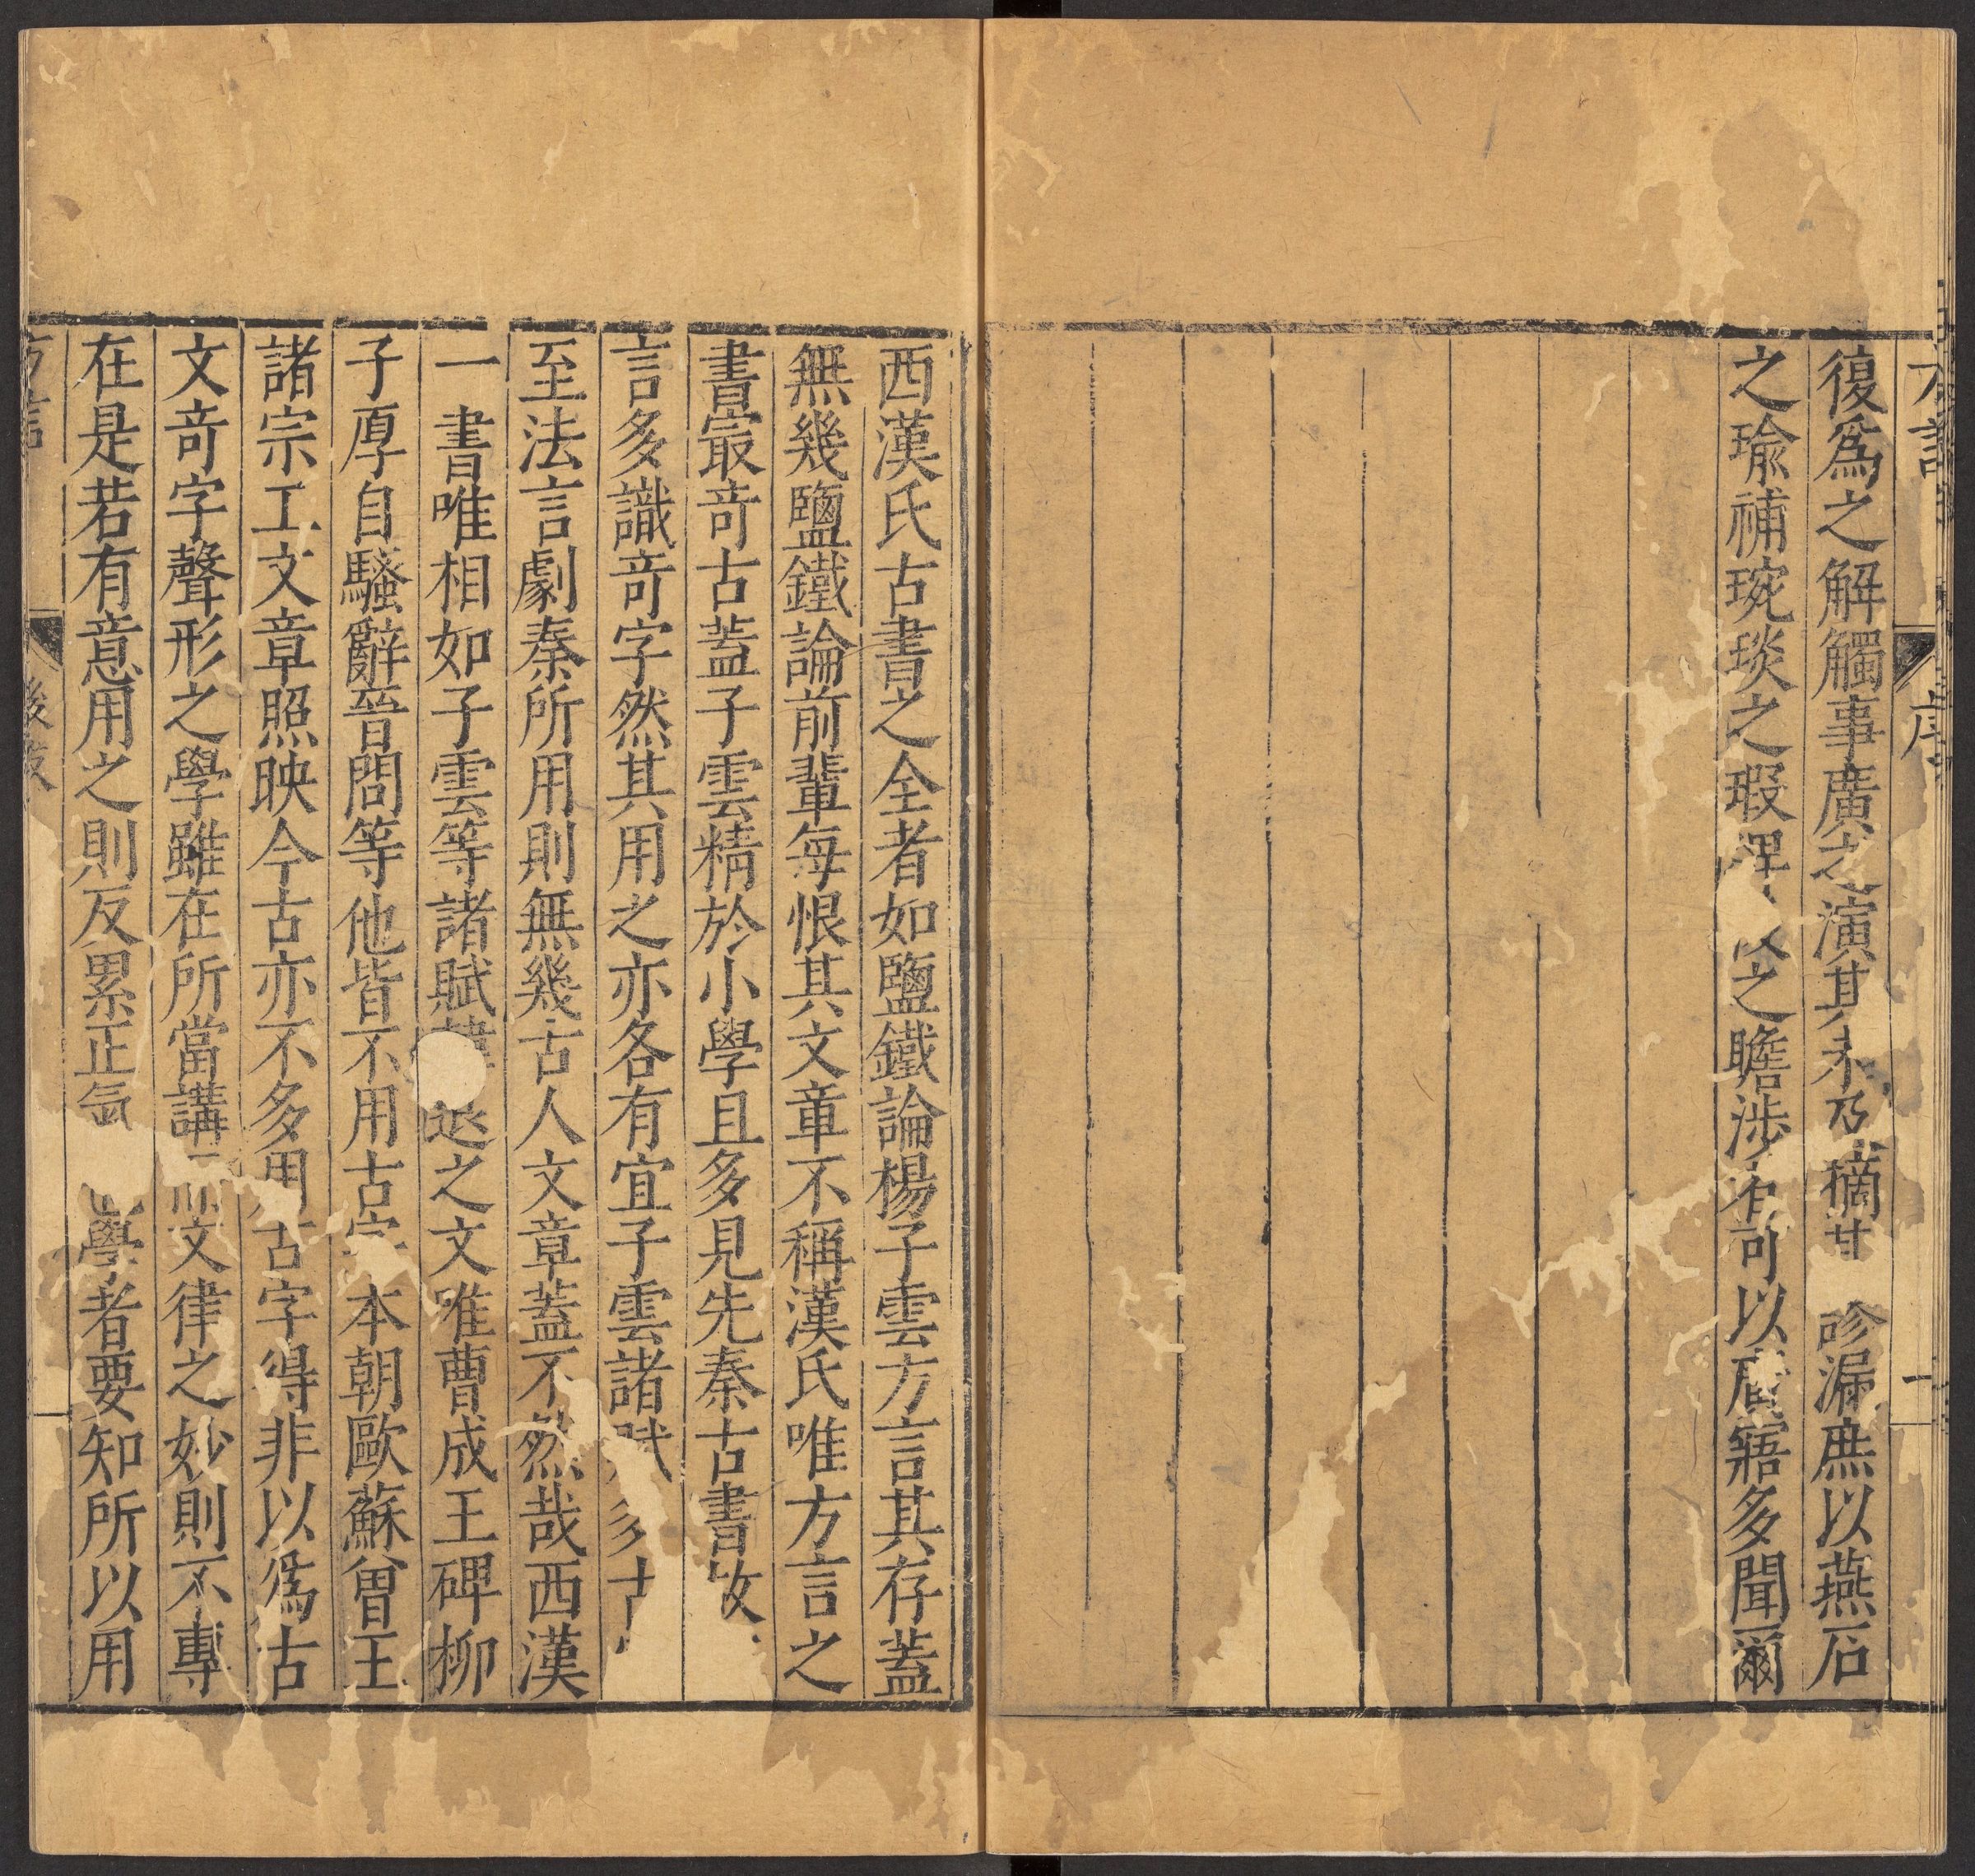 序
一
復爲之解觸事廣之演其未及摘其 謬漏庶以燕石
之瑜補琬琰之瑕俾 之瞻涉者可以廣寤多聞爾
西漢氏古書之全者如鹽鐵論楊子雲方言其存蓋
無幾鹽鐵論前輩每恨其文章不稱漢氏唯方言之
書最竒古蓋子雲精於小學且多見先秦古書故
言多識竒字然其用之亦各有宜子雲諸賦多古
至法言劇秦所用則無幾古人文章蓋不然哉西漢
一書唯相如子雲等諸賦韓退之文唯曹成王碑柳
子厚自騷辭晉問等他皆不用古字本朝歐蘇曾王
諸宗工文章照映今古亦不多用古字得非以爲古
文竒字聲形之學雖在所當講 文律之妙則不專
在是若有意用之則反累正氣 學者要知所以用
方言